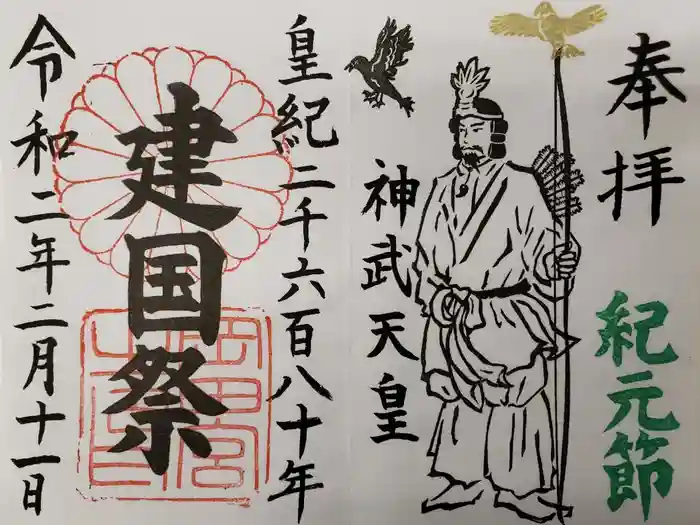 奉拝
紀元節
神武天皇
皇紀二千六百八十年
建国祭
令和二年二月十一日